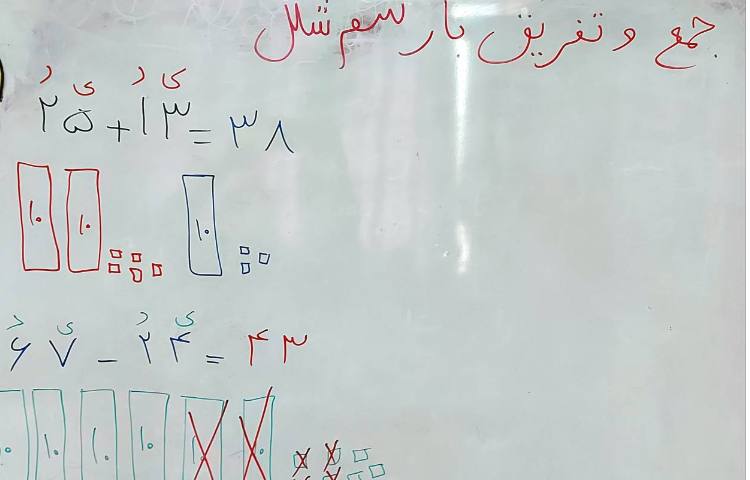 جمع و تفریق با رسم شکل
د ی د ی
۲۵ + ۱۳ = ۳۸
۱۰ ۱۰ ۱۰
د ی د ی
۶۷ - ۲۴ = ۴۳
۱۰ ۱۰ ۱۰ ۱۰